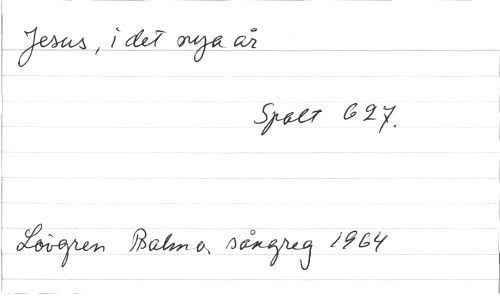 Jesus, i det nya år
Spalt 627.
Lövgren Psalm o. sångreg 1964